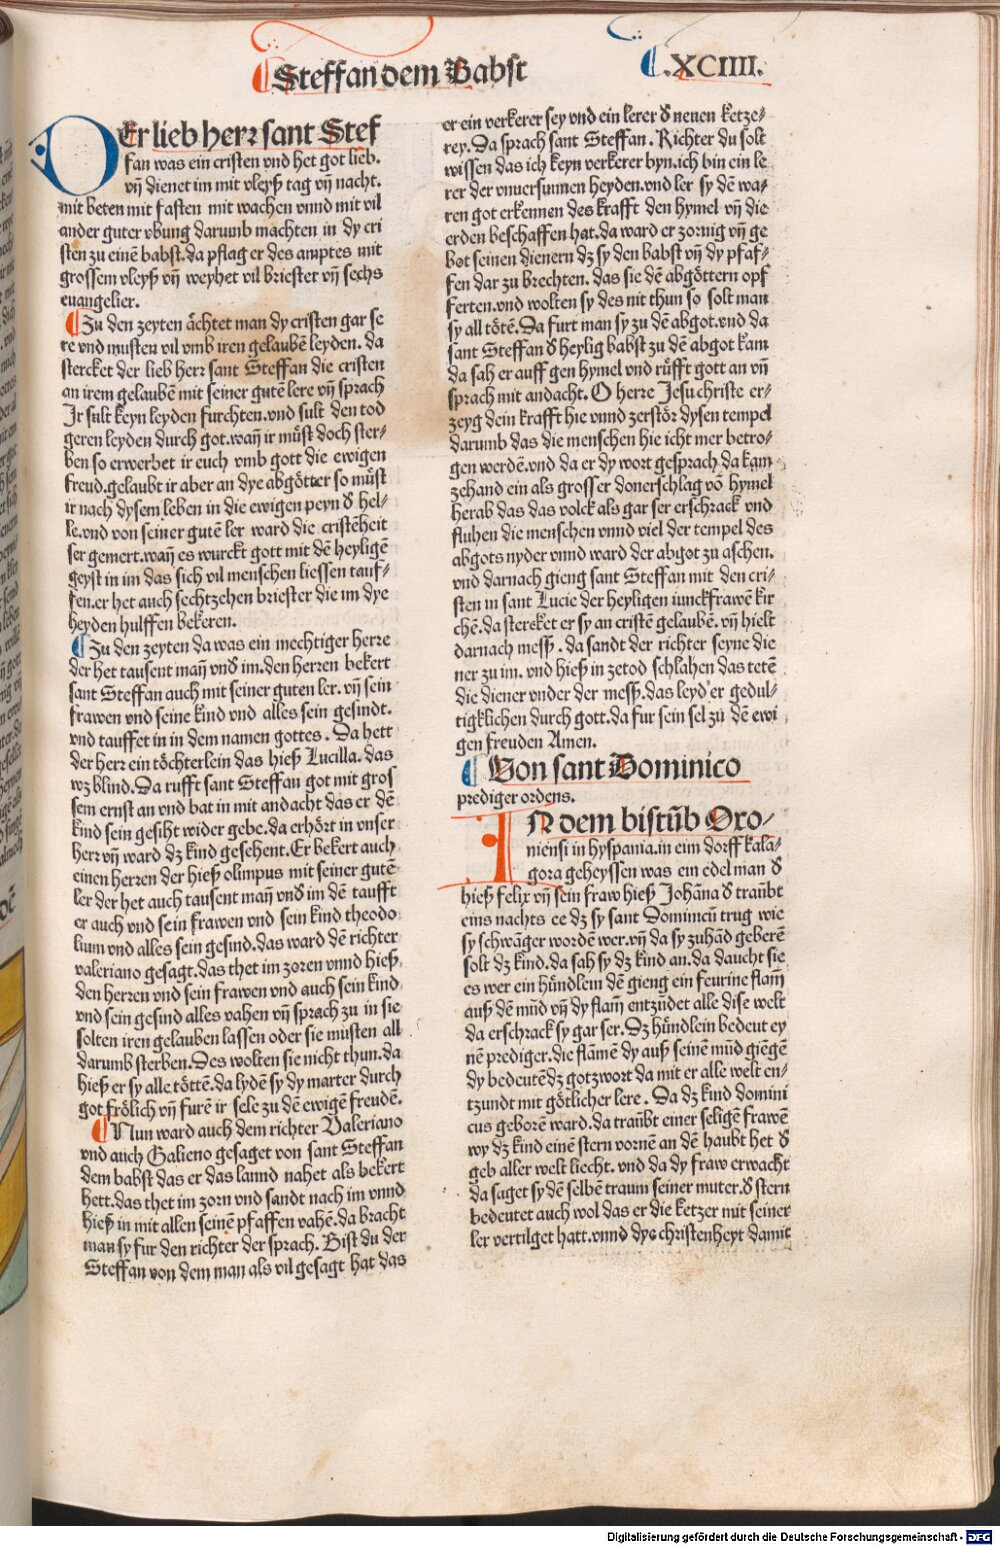 Steffan dem Babst
.XCIIII.
DEr lieb herr sant Stef
fan was ein cristen vnd het got lieb.
vñ dienet im mit vleyß tag vñ nacht.
mit beten mit fasten mit wachen vnnd mit vil
ander guter vbung darumb machten in dy cri
sten zu einē babst. da pflag er des amptes mit
grossem vleyß vñ weyhet vil briester vñ sechs
euangelier.
Zu den zeyten åchtet man dy cristen gar se
re vnd musten vil vmb iren gelaubē leyden. da
stercket der lieb herr sant Steffan die cristen
an irem gelaubē mit seiner gutē lere vñ sprach
Ir sult keyn leyden furchten. vnd sult den tod
geren leyden durch got. wañ ir můst doch ster⸗
ben so erwerbet ir euch vmb gott die ewigen
freud. gelaubt ir aber an dye abgötter so můst
ir nach dysem leben in die ewigen peyn d̕ hel⸗
le. vnd von seiner gutē ler ward die cristēheit
ser gemert. wañ es wurckt gott mit dē heyligē
geyst in im das sich vil menschen liessen tauf⸗
fen. er het auch sechtzehen briester die im dye
heyden hulffen bekeren.
Zu den zeyten da was ein mechtiger herre
der het tausent mañ vnd̕ im. den herren bekert
sant Steffan auch mit seiner guten ler. vñ sein
frawen vnd seine kind vnd alles sein gesindt.
vnd tauffet in in dem namen gottes. Da hett
der herr ein töchterlein das hieß Lucilla. das
wz blind. Da rufft sant Steffan got mit gros
sem ernst an vnd bat in mit andacht das er dē
kind sein gesiht wider gebe. da erhört in vnser
herr vñ ward dz kind gesehent. Er bekert auch
einen herren der hieß olimpus mit seiner gutē
ler der het auch tausent mañ vnd̕ im dē taufft
er auch vnd sein frawen vnd sein kind theodo
lium vnd alles sein gesind. das ward dē richter
valeriano gesagt. das thet im zoren vnnd hieß
den herren vnd sein frawen vnd auch sein kind
vnd sein gesind alles vahen vñ sprach zu in sie
solten iren gelauben lassen oder sie musten all
darumb sterben. Des wolten sie nicht thun. da
hieß er sy alle töttē. da lydē sy dy marter durch
got frölich vñ furē ir sele zu dē ewigē freudē.
Nun ward auch dem richter Valeriano
vnd auch Galieno gesaget von sant Steffan
dem babst das er das lannd nahet als bekert
hett. das thet im zorn vnd sandt nach im vnnd
hieß in mit allen seinē pfaffen vahē. da bracht
man sy fur den richter der sprach. Bist du der
Steffan von dem man als vil gesagt hat das
er ein verkerer sey vnd ein lerer d̕ neuen ketze⸗
rey. Da sprach sant Steffan. Richter du solt
wissen das ich keyn verkerer byn. ich bin ein le
rer der vnuersunnen heyden. vnd ler sy dē wa⸗
ren got erkennen des krafft den hymel vñ die
erden beschaffen hat. da ward er zornig vñ ge
bot seinen dienern dz sy den babst vñ dy pfaf⸗
fen dar zu brechten. das sie dē abgöttern opf
ferten. vnd wolten sy des nit thun so solt man
sy all tötē. Da furt man sy zu dē abgot. vnd da
sant Steffan d̕ heylig babst zu dē abgot kam
da sah er auff gen hymel vnd růfft gott an vñ
sprach mit andacht. O herre Jesu christe er⸗
zeyg dein krafft hie vnnd zerstör dysen tempel
darumb das die menschen hie icht mer betro⸗
gen werdē. vnd da er dy wort gesprach da kam
zehand ein als grosser donerschlag vō hymel
herab das das volck als gar ser erschrack vnd
fluhen die menschen vnnd viel der tempel des
abgots nyder vnnd ward der abgot zu aschen.
vnd darnach gieng sant Steffan mit den cri⸗
sten in sant Lucie der heyligen iunckfrawē kir
chē. da stercket er sy an cristē gelaubē. vñ hielt
darnach mess. da sandt der richter seyne die
ner zu im. vnd hieß in zetod schlahen das tetē
die diener vnder der mess. das leyd er gedul⸗
tigklichen durch gott. da fur sein sel zů dē ewi
gen freuden Amen.
Von sant Dominico
prediger ordens.
IN dem bistūb Oxo⸗
niensi in hyspania. in eim dorff kala⸗
gora geheyssen was ein edel man d̕
hieß felix vñ sein fraw hieß Johāna d̕ traůbt
eins nachts ee dz sy sant Dominicū trug wie
sy schwāger wordē wer. vñ da sy zuhād geberē
solt dz kind. da sah sy dz kind an. da daucht sie
es wer ein hündlein dē gieng ein feurine flam̄
auß dē mūd vñ dy flam̄ entzündet alle dise welt
da erschrack sy gar ser. Dz hündlein bedeut ey
nē prediger. die flāmē dy auß seinē mūd giēgē
dy bedeutē dz gotzwort da mit er alle welt en⸗
tzundt mit götlicher lere. Da dz kind domini
cus geborē ward. da traůbt einer seligē frawē
wy dz kind einē stern vornē an dē haubt het d̕
geb aller welt liecht. vnd da dy fraw erwacht
da saget sy dē selbē traum seiner muter. d̕ stern
bedeutet auch wol das er die ketzer mit seiner
ler vertilget hatt. vnnd dye christenheyt damit
Digitalisierung gefördert durch die Deutsche Forschungsgemeinschaft - DFG